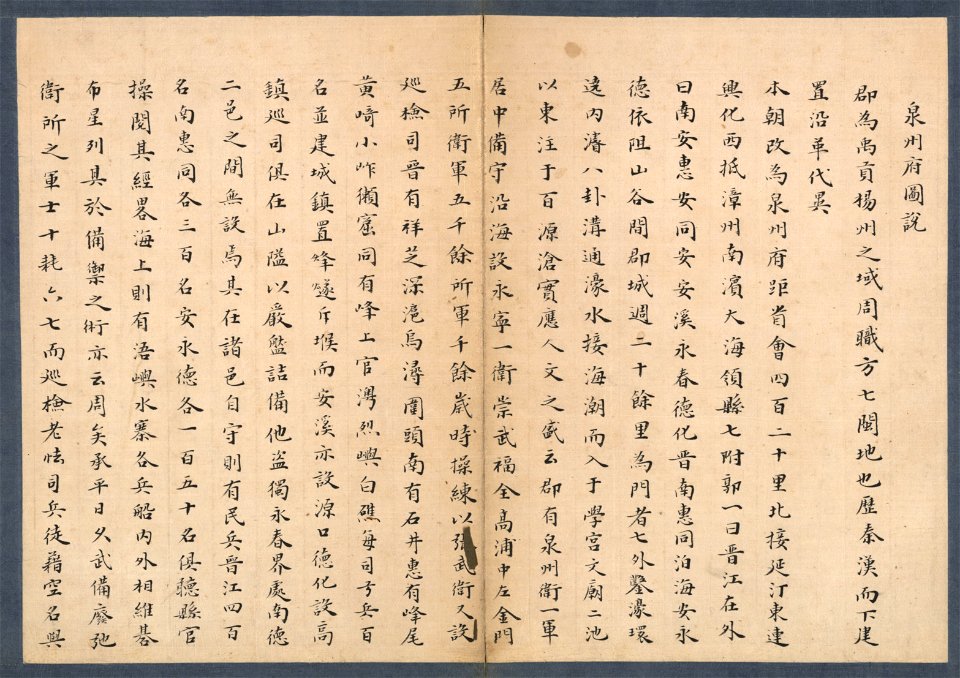 泉州府圖說
郡為禹貢揚州之域周職方七閩地也歷秦漢而下建
置沿革代異
本朝改為泉州府距省會四百二十里北接延汀東連
興化西抵漳州南濱大海領縣七附郭一曰晉江在外
曰南安惠安同安安溪永春德化晋南惠同泊海安永
德依阻山谷間郡城週二十餘里為門者七外鑿濠環
遶內濬八卦溝通濠水接海潮而入于學宮文廟二池
以東注于百源滄實應人文之盛云郡有泉州衛一軍
居中備守沿海設永寧一衛崇武福全高浦中左金門
五所衛軍五千餘所軍千餘歲時操練以張武衛又設
巡檢司晉有祥芝深滬烏潯圍頭南有石井惠有峰尾
黃崎小岞獺窟同有峰上官澳烈嶼白礁每司弓兵百
名並建城鎮置烽燧斥堠而安溪亦設源口德化設高
鎮巡司俱在山隘以嚴盤詰備他盜獨永春界處南德
二邑之間無設焉其在諸邑自守則有民兵晉江四百
名南惠同各三百名安永德各一百五十名俱聽縣官
操閱其經畧海上則有浯嶼水寨各兵船內外相維碁
布星列其於備禦之術亦云周矣承平日久武備廢弛
衛所之軍士十耗六七而巡檢老怯司兵徒藉空名與